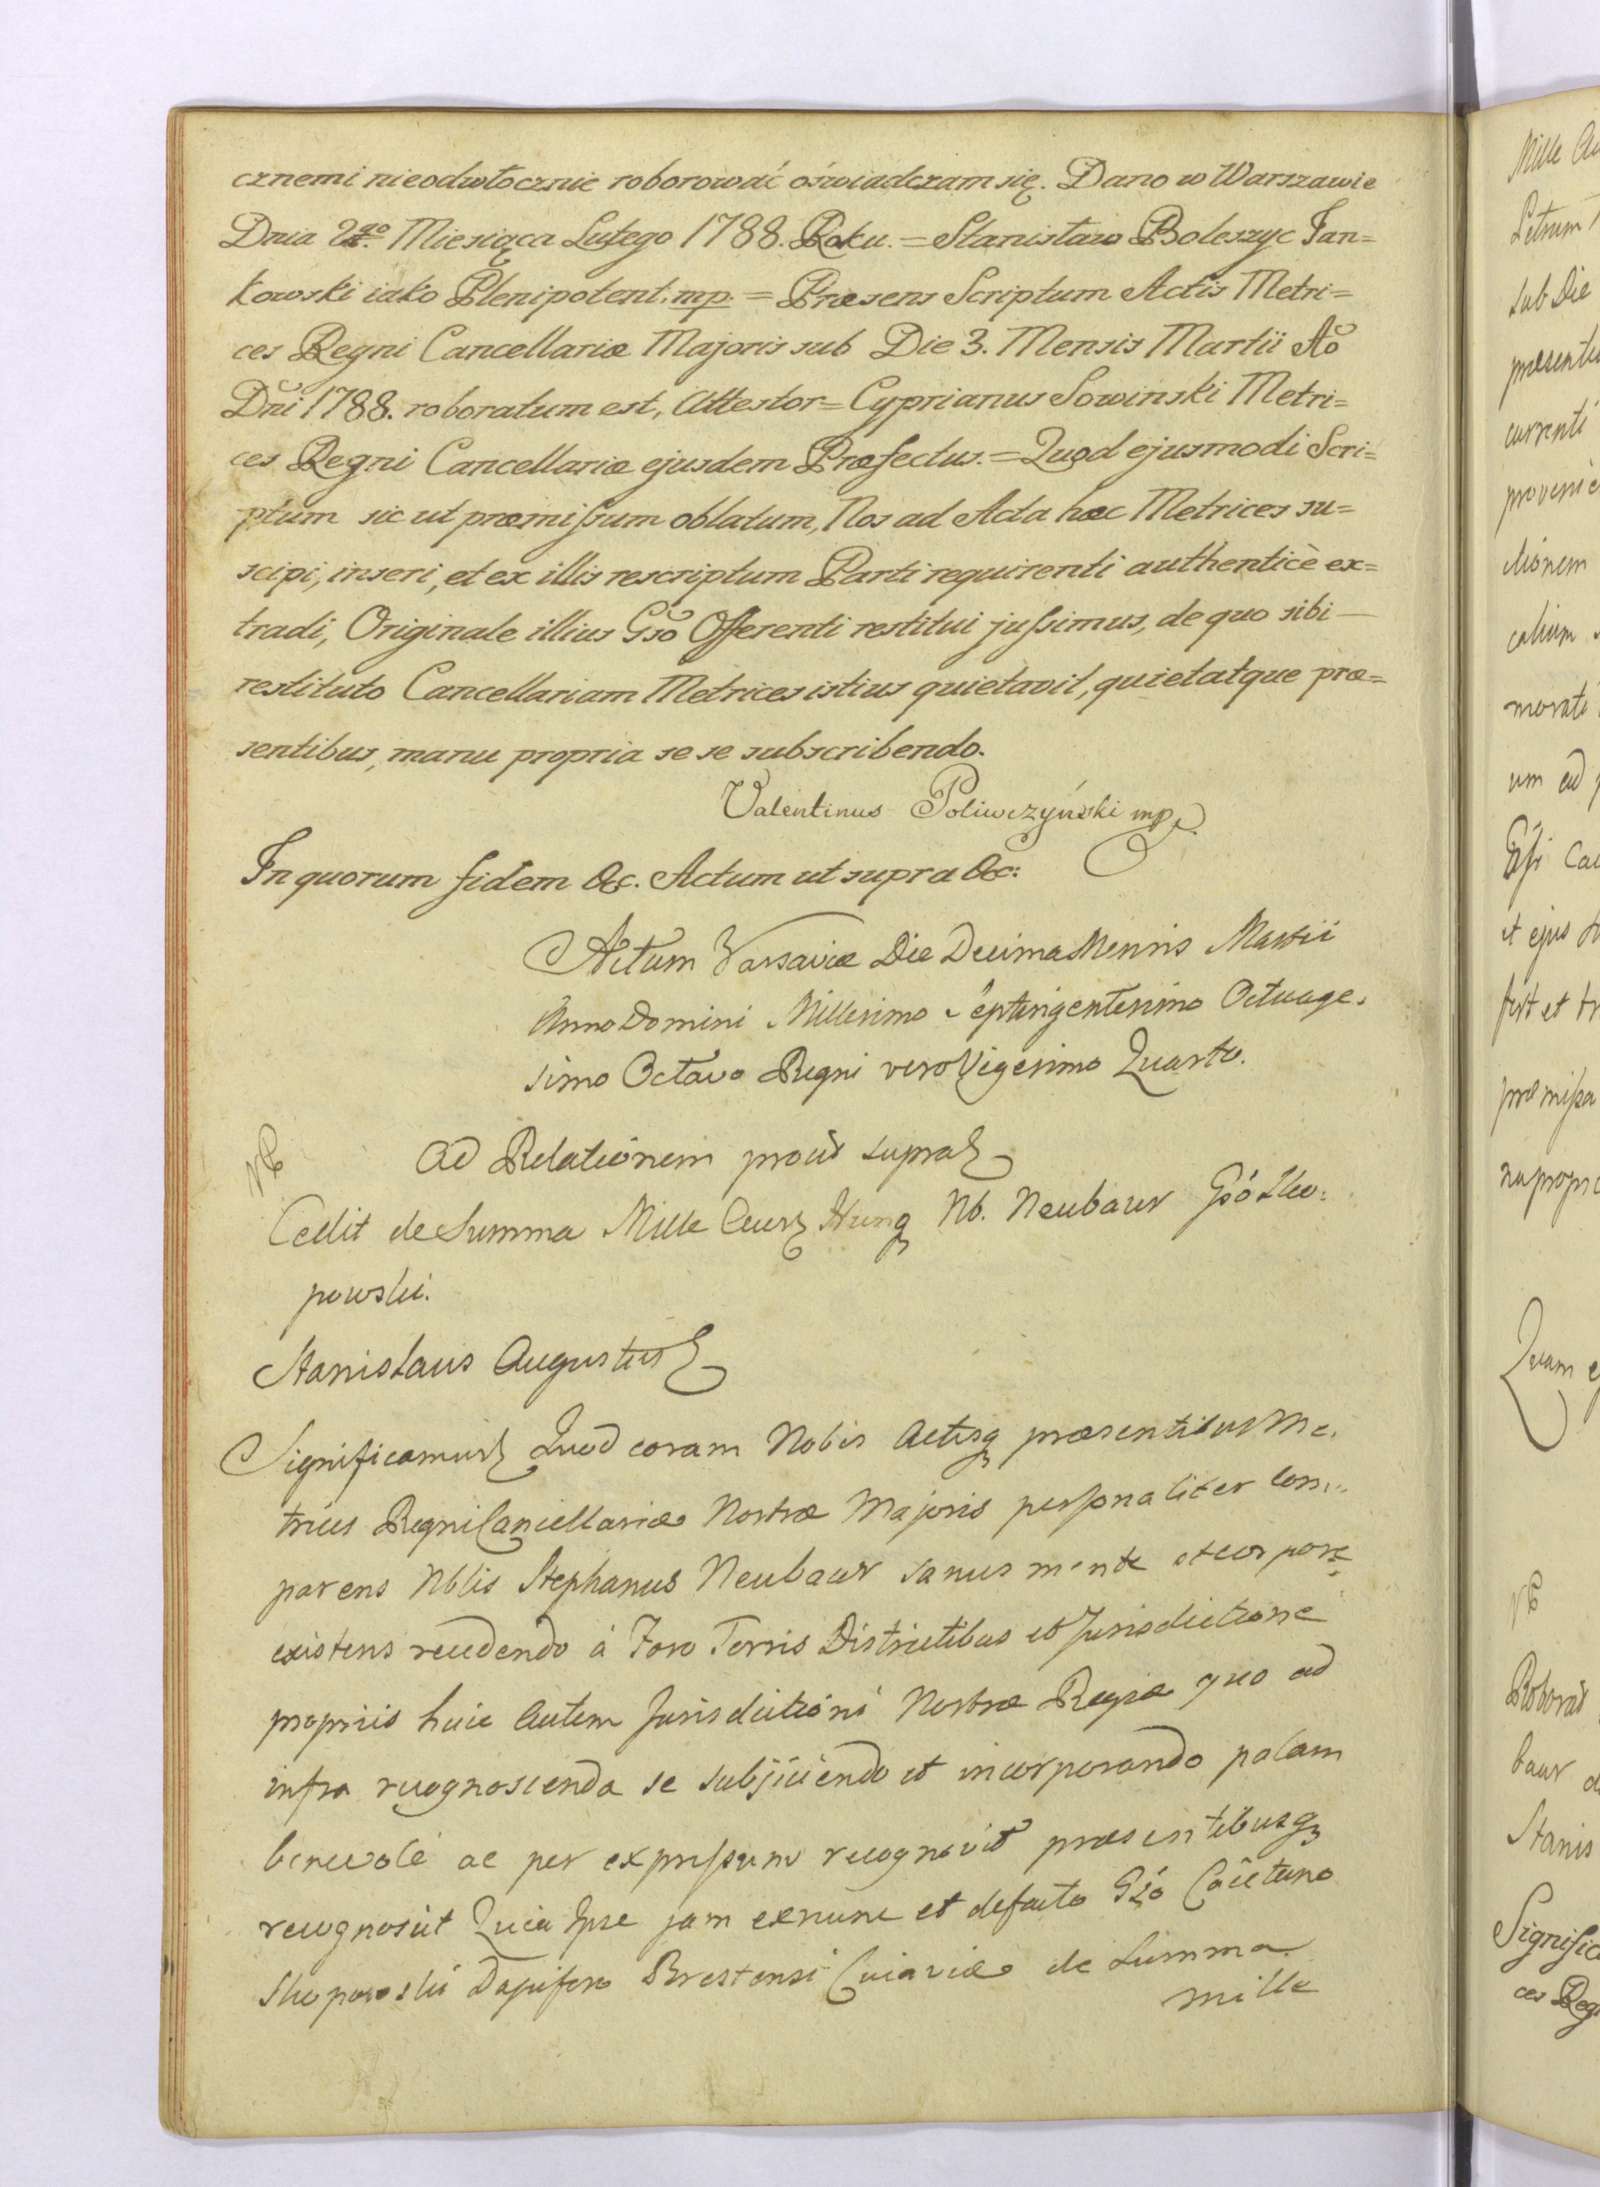 cznemi nieodwłocznie roborować oświadczam się. Dano w Warszawie
Dnia 2go Miesiąca Lutego 1788. Roku. = Stanisław Boleszyc Jan=
kowski iako Plenipotent. mp. = Præsens Scriptum Actis Metri=
ces Regni Cancellariæ Majoris sub Die 3. Mensis Martii Aō
Dn̄i 1788. roboratum est, Attestor = Cyprianus Sowinski Metri=
ces Regni Cancellariæ ejusdem Præfectus. = Quod ejusmodi Scri=
ptum sic ut præmissum oblatum, Nos ad Acta hæc Metrices su=
scipi, inseri, et ex illis rescriptum Parti requirenti authenticè ex=
tradi, Originale illius Gsō Offerenti restitui jussimus, de quo sibi
restituto Cancellariam Metrices istius quietavit, quietatque præ=
sentibus, manu propria se se subscribendo.
Valentinus Poliwczyński mp.
In quorum fidem &c. Actum ut supra &c:
Actum Varsaviæ Die Decima Mensis Martii
Anno Domini Millesimo Septingentesimo Octuage.
simo Octavo Regni vero Vigesimo Quarto.
Ad Relationem prout supra
Cedit de Summa Mille Aur Hung Nb. Neubaur Gsó Sko:
powski.
Stanislaus Augustus
Significamus Quod coram Nobis Actisq præsentibus Me.
trices Regni Cancellariæ Nostræ Majoris personaliter Com:
parens Nblis Stephanus Neubaur sanus mente et corpore
existens recedendo à Foro Terris Districtibus et Jurisdictione
propriis huic autem Jurisdictioni Nostræ Regiæ quo ad
infra recognoscenda se subjiciendo et incorporando palam
benevole ac per expressum recognovit præsentibusq
recognoscit Quia Ipse jam exnunc et defacto Gsó Caietano
Skopowski Dapifero Brestensi Cuiaviæ de Summa
mille